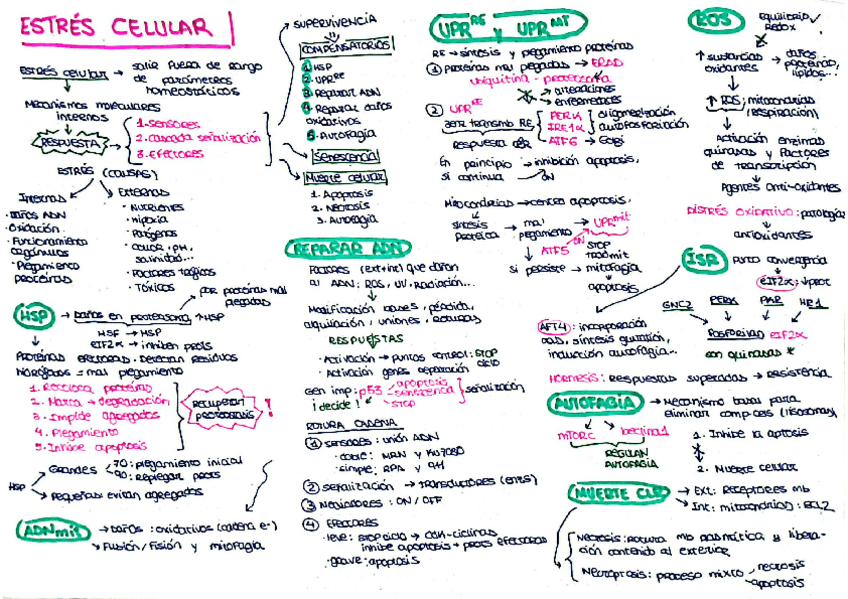 ESTRÉS CELULAR
ESTRÉS celular → salir fuera de rango
de parámetros
homeostáticos
Mecanismos moleculares
internos
RESPUESTA
1. SENSORES
2. Cascada señalización
3. EFECTORES
ESTRÉS (CAUSAS)
Internas
· Daños ADN
· Oxidación
· Funcionamiento
orgánulos
· Plegamiento
proteínas
Externas
· Nutrientes
· Hipoxia
· Patógenos
· Calor, pH,
salinidad...
· Factores tróficos
· Tóxicos
HSP → Daños en proteasoma ↑HSP
por proteínas mal
plegadas
HSF → HSP
EIF2α → inhiben prots
Proteínas efectoras. Detectan residuos
hidrófogos = mal plegamiento
1. Recoloca proteínas
2. Marca → degradación
3. Impide agregados
4. Plegamiento
5. Inhibe apoptosis
recuperan
proteostasis
!
HSP
Grandes
70: plegamiento inicial
90: replegar prots
Pequeñas evitan agregados
ADNmit → Daños: oxidativos (cadena e-)
→ Fusión/Fisión y mitofagia
SUPERVIVENCIA
COMPENSATORIOS
1 HSP
2 UPRRE
3 Reparar ADN
4 Reparar daños
oxidativos
5. Autofagia
Senescencia
Muerte celular
1. Apoptosis
2. Necrosis
3. Autofagia
REPARAR ADN
FACTORES (ext+int) que dañan
al ADN: ROS, UV, Radiación...
Modificación bases, pérdida,
alquilación, uniones, roturas
RESPUESTAS
· Activación → puntos control: STOP
ciclo
· Activación genes reparación
Gen imp: p53
apoptosis
senescencia
STOP
señalización
¡decide!
ROTURA CADENA
1 sensores: unión ADN
· doble: MRN y KU7080
· simple: RPA y 911
2 señalización → transductores (enzs)
3 Mediadores: ON/OFF
4 Efectores
· leve: STOP ciclo → CDK-ciclinas
inhibe apoptosis → prots efectoras
· grave: apoptosis
UPRRE y UPRMT
RE → síntesis y plegamiento proteínas
1 proteínas mal plegadas → ERAD
ubiquitina - proteosoma
→ alteraciones
→ enfermedades
2 UPRRE
transmb RE
respuesta
PERK
IRE1α
ATF6 → Golgi
oligomerización
autofosforilación
En principio → inhibición apoptosis,
si continúa ON
Mitocondrias → centro apoptosis.
síntesis
proteica
→ mal
plegamiento
→ UPRmit
ATF5
ON
STOP
trad mit
si persiste → mitofagia
apoptosis
AFT4: incorporación
aas, síntesis glutation,
inducción autofagia...
ROS
equilibrio
Redox
↑ sustancias
oxidantes
→ daños
proteínas,
lípidos...
↑ ROS, mitocondrias
(respiración)
Activación enzimas
quinasas y Factores
de transcripción
Agentes anti-oxidantes
DISTRÉS OXIDATIVO: patología
antioxidantes
ISR
punto convergencia
eIF2α: ↓prot
GNC2 PERK PKR HR1
FOSFORILAN eIF2α
son quinasas *
HORMESIS: Respuestas superadas → resistencia
AUTOFAGIA → Mecanismo basal para
eliminar comp cels (lisosomas)
mTORC beclina1
REGULAN
AUTOFAGIA
1. Inhibe la aptosis
2. Muerte celular
MUERTE CLR → Ext: Receptores mb
→ Int: mitocondrias: BCL2
Necrosis: rotura mb plasmática y libera-
ción contenido al exterior
Necroptosis: proceso mixto
necrosis
apoptosis